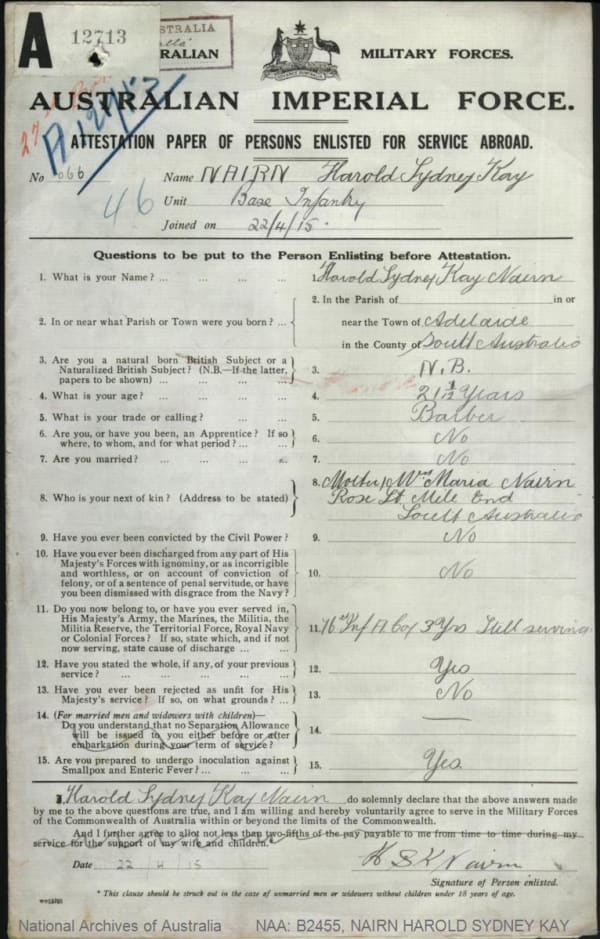 A 12713
STRALIA
RALIAN MILITARY FORCES.
AUSTRALIAN IMPERIAL FORCE.
ATTESTATION PAPER OF PERSONS ENLISTED FOR SERVICE ABROAD.
No 066 Name NAIRN Harold Sydney Kay
46 Unit Base Infantry
Joined on 22/4/15.
Questions to be put to the Person Enlisting before Attestation.
1. What is your Name? ... ... ... ... 1. Harold Sydney Kay Nairn
2. In or near what Parish or Town were you born? ... 2. In the Parish of in or
near the Town of Adelaide
in the County of South Australia
3. Are you a natural born British Subject or a
Naturalized British Subject? (N.B.—If the latter,
papers to be shown) ... ... ... ... 3. N.B.
4. What is your age? ... ... ... ... 4. 21 ½ Years
5. What is your trade or calling? ... ... ... 5. Barber
6. Are you, or have you been, an Apprentice? If so
where, to whom, and for what period? ... ... 6. No
7. Are you married? ... ... ... 7. No
8. Who is your next of kin? (Address to be stated) 8. Mother, Mrs Maria Nairn
Rose St Mile End
South Australia
9. Have you ever been convicted by the Civil Power? 9. No
10. Have you ever been discharged from any part of His
Majesty's Forces with ignominy, or as incorrigible
and worthless, or on account of conviction of
felony, or of a sentence of penal servitude, or have
you been dismissed with disgrace from the Navy? 10. No
11. Do you now belong to, or have you ever served in,
His Majesty's Army, the Marines, the Militia, the
Militia Reserve, the Territorial Force, Royal Navy
or Colonial Forces? If so, state which, and if not
now serving, state cause of discharge ... ... 11. 76th Inf A Coy 3 Yrs Still serving
12. Have you stated the whole, if any, of your previous
service? ... ... ... ... ... 12. Yes
13. Have you ever been rejected as unfit for His
Majesty's service? If so, on what grounds? ... 13. No
14. (For married men and widowers with children)—
Do you understand that no Separation Allowance
will be issued to you either before or after
embarkation during your term of service? 14. —
15. Are you prepared to undergo inoculation against
Smallpox and Enteric Fever? ... ... ... 15. Yes.
I, Harold Sydney Kay Nairn do solemnly declare that the above answers made
by me to the above questions are true, and I am willing and hereby voluntarily agree to serve in the Military Forces
of the Commonwealth of Australia within or beyond the limits of the Commonwealth.
And I further agree to allot not less than two-fifths of the pay payable to me from time to time during my
service for the support of my wife and children.*
Date 22/4/15 H S K Nairn
Signature of Person enlisted.
* This clause should be struck out in the case of unmarried men or widowers without children under 18 years of age.
National Archives of Australia NAA: B2455, NAIRN HAROLD SYDNEY KAY